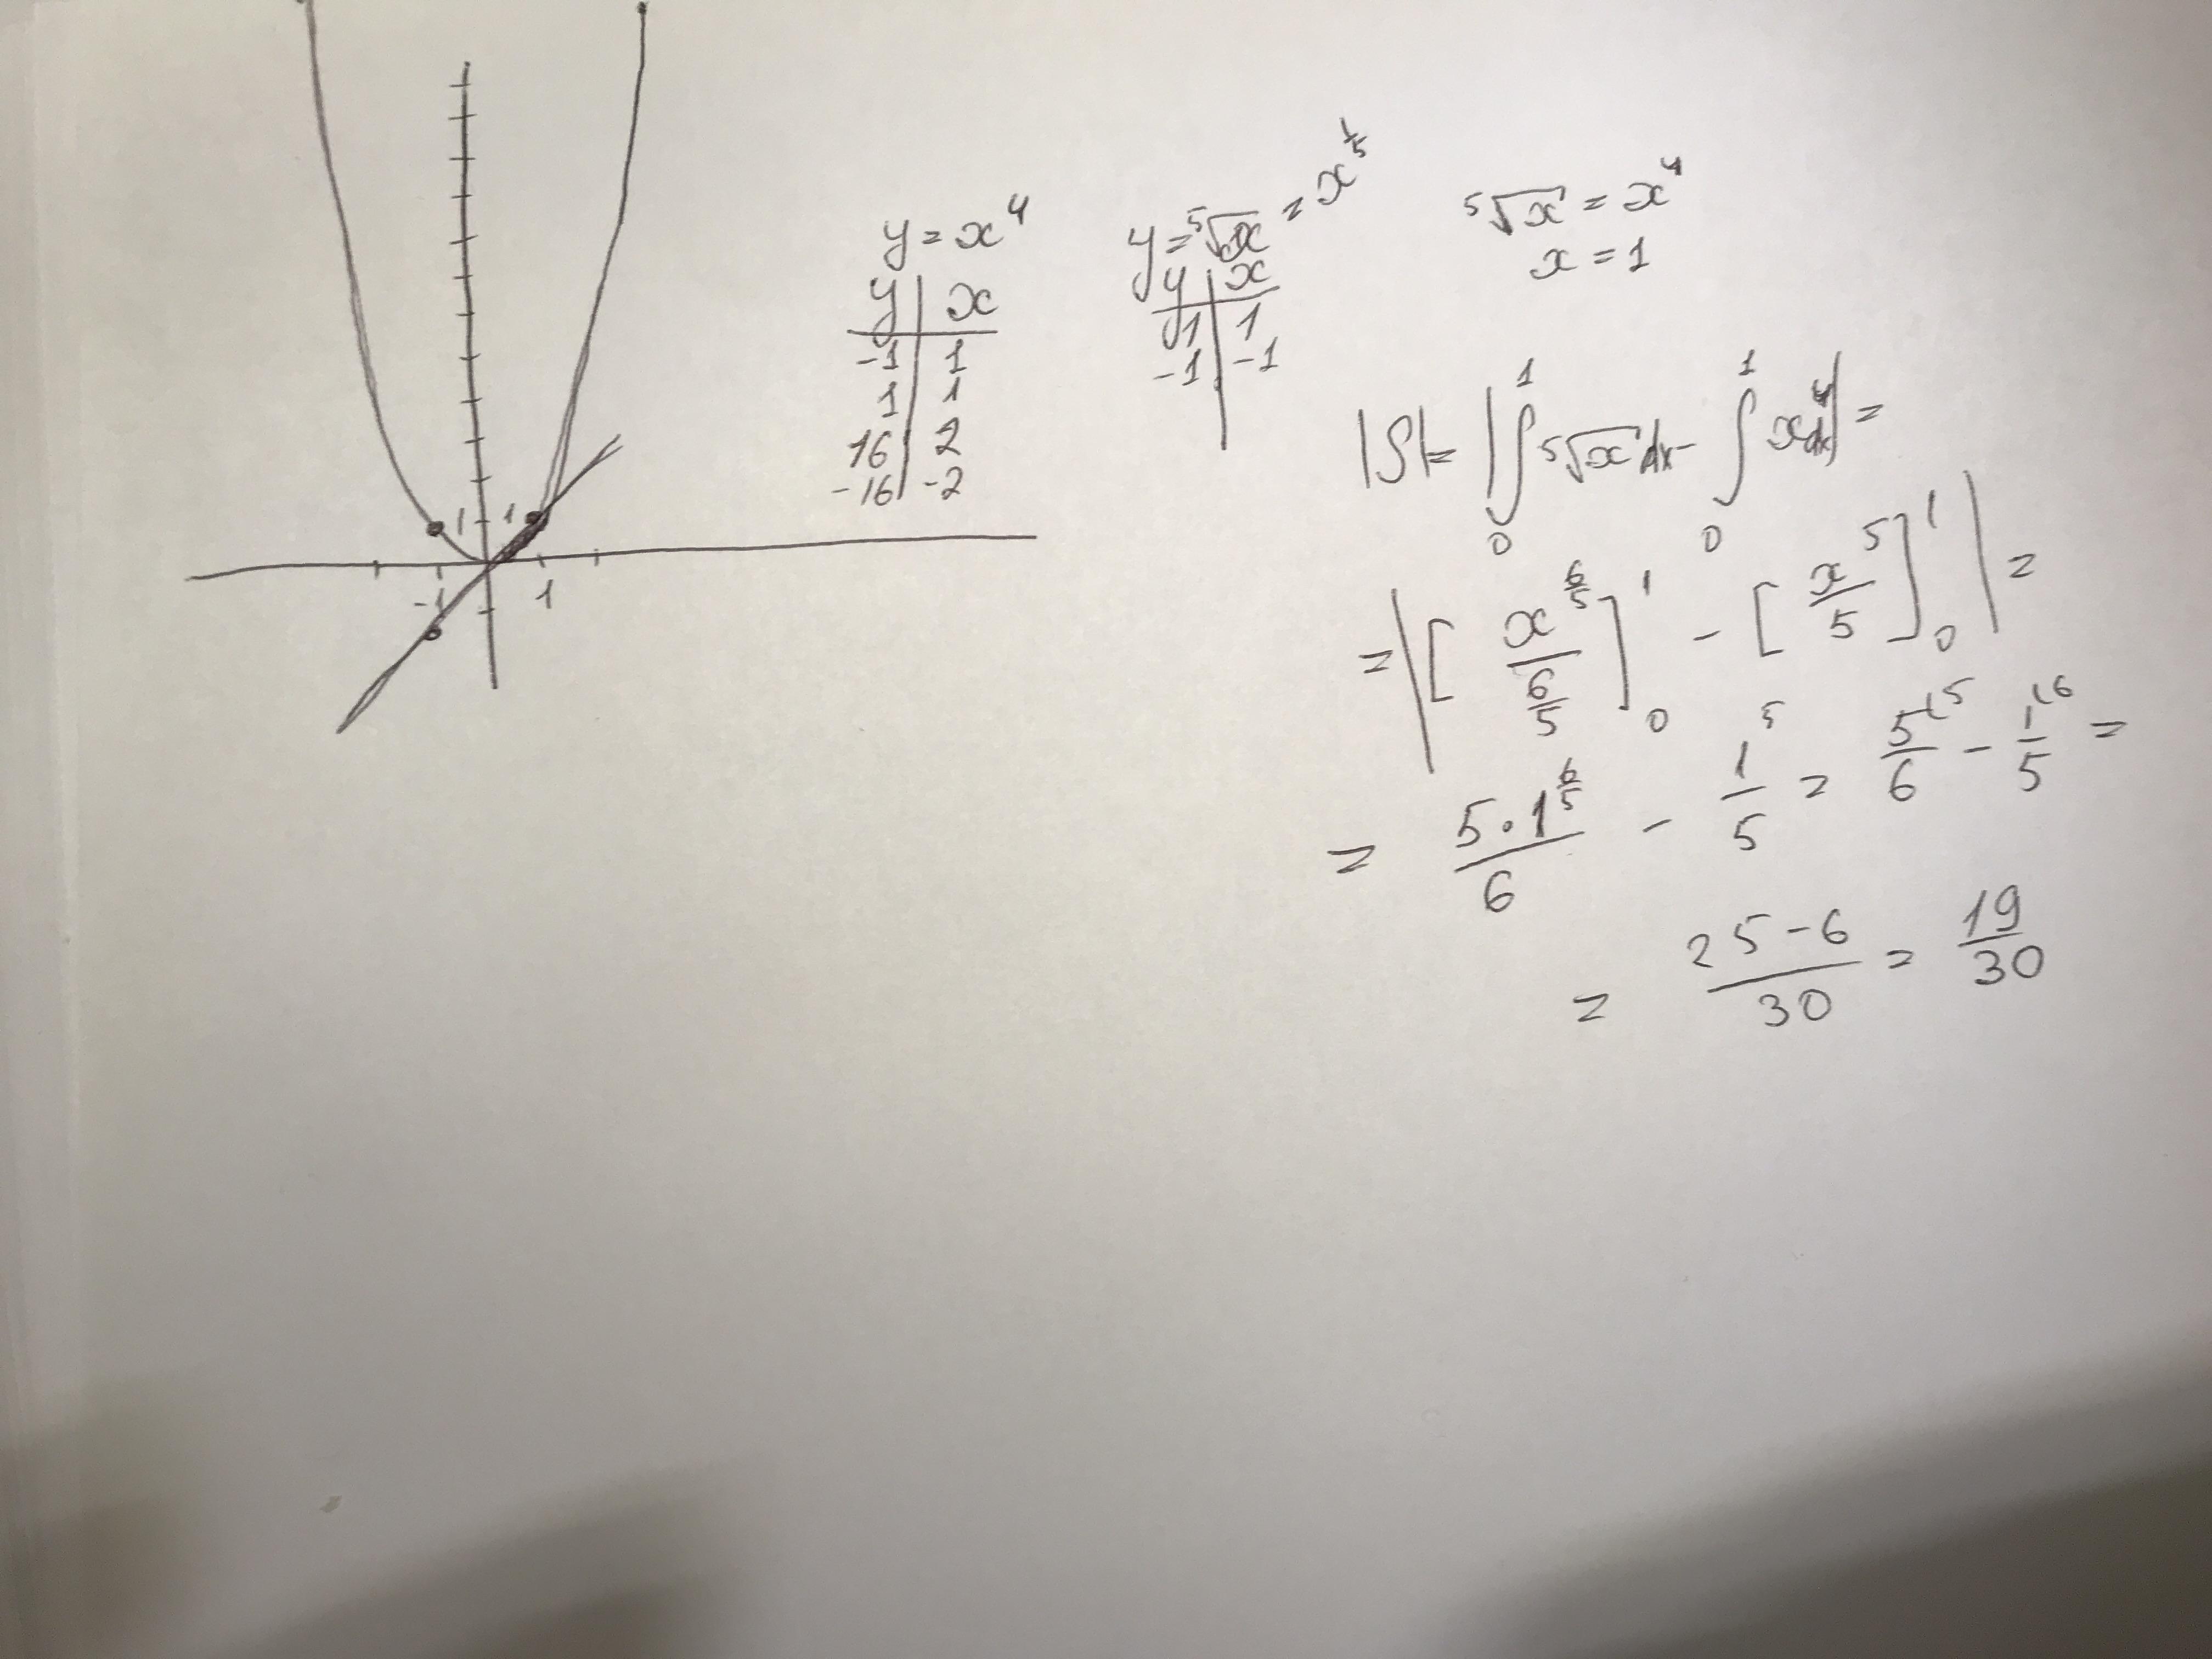 y = x⁴
y | x
-1 | 1
1 | 1
16 | 2
-16 | -2
y = ⁵√x = x^(1/5)
y | x
1 | 1
-1 | -1
⁵√x = x⁴
x = 1
1 1
-1 1
|S| = | ∫₀¹ ⁵√x dx - ∫₀¹ x⁴ dx | =
= | [ x^(6/5) / (6/5) ]₀¹ - [ x⁵ / 5 ]₀¹ | =
= (5 · 1^(6/5)) / 6 - 1⁵ / 5 = 5⁽⁵ / 6 - 1⁽⁶ / 5 =
= (25 - 6) / 30 = 19 / 30